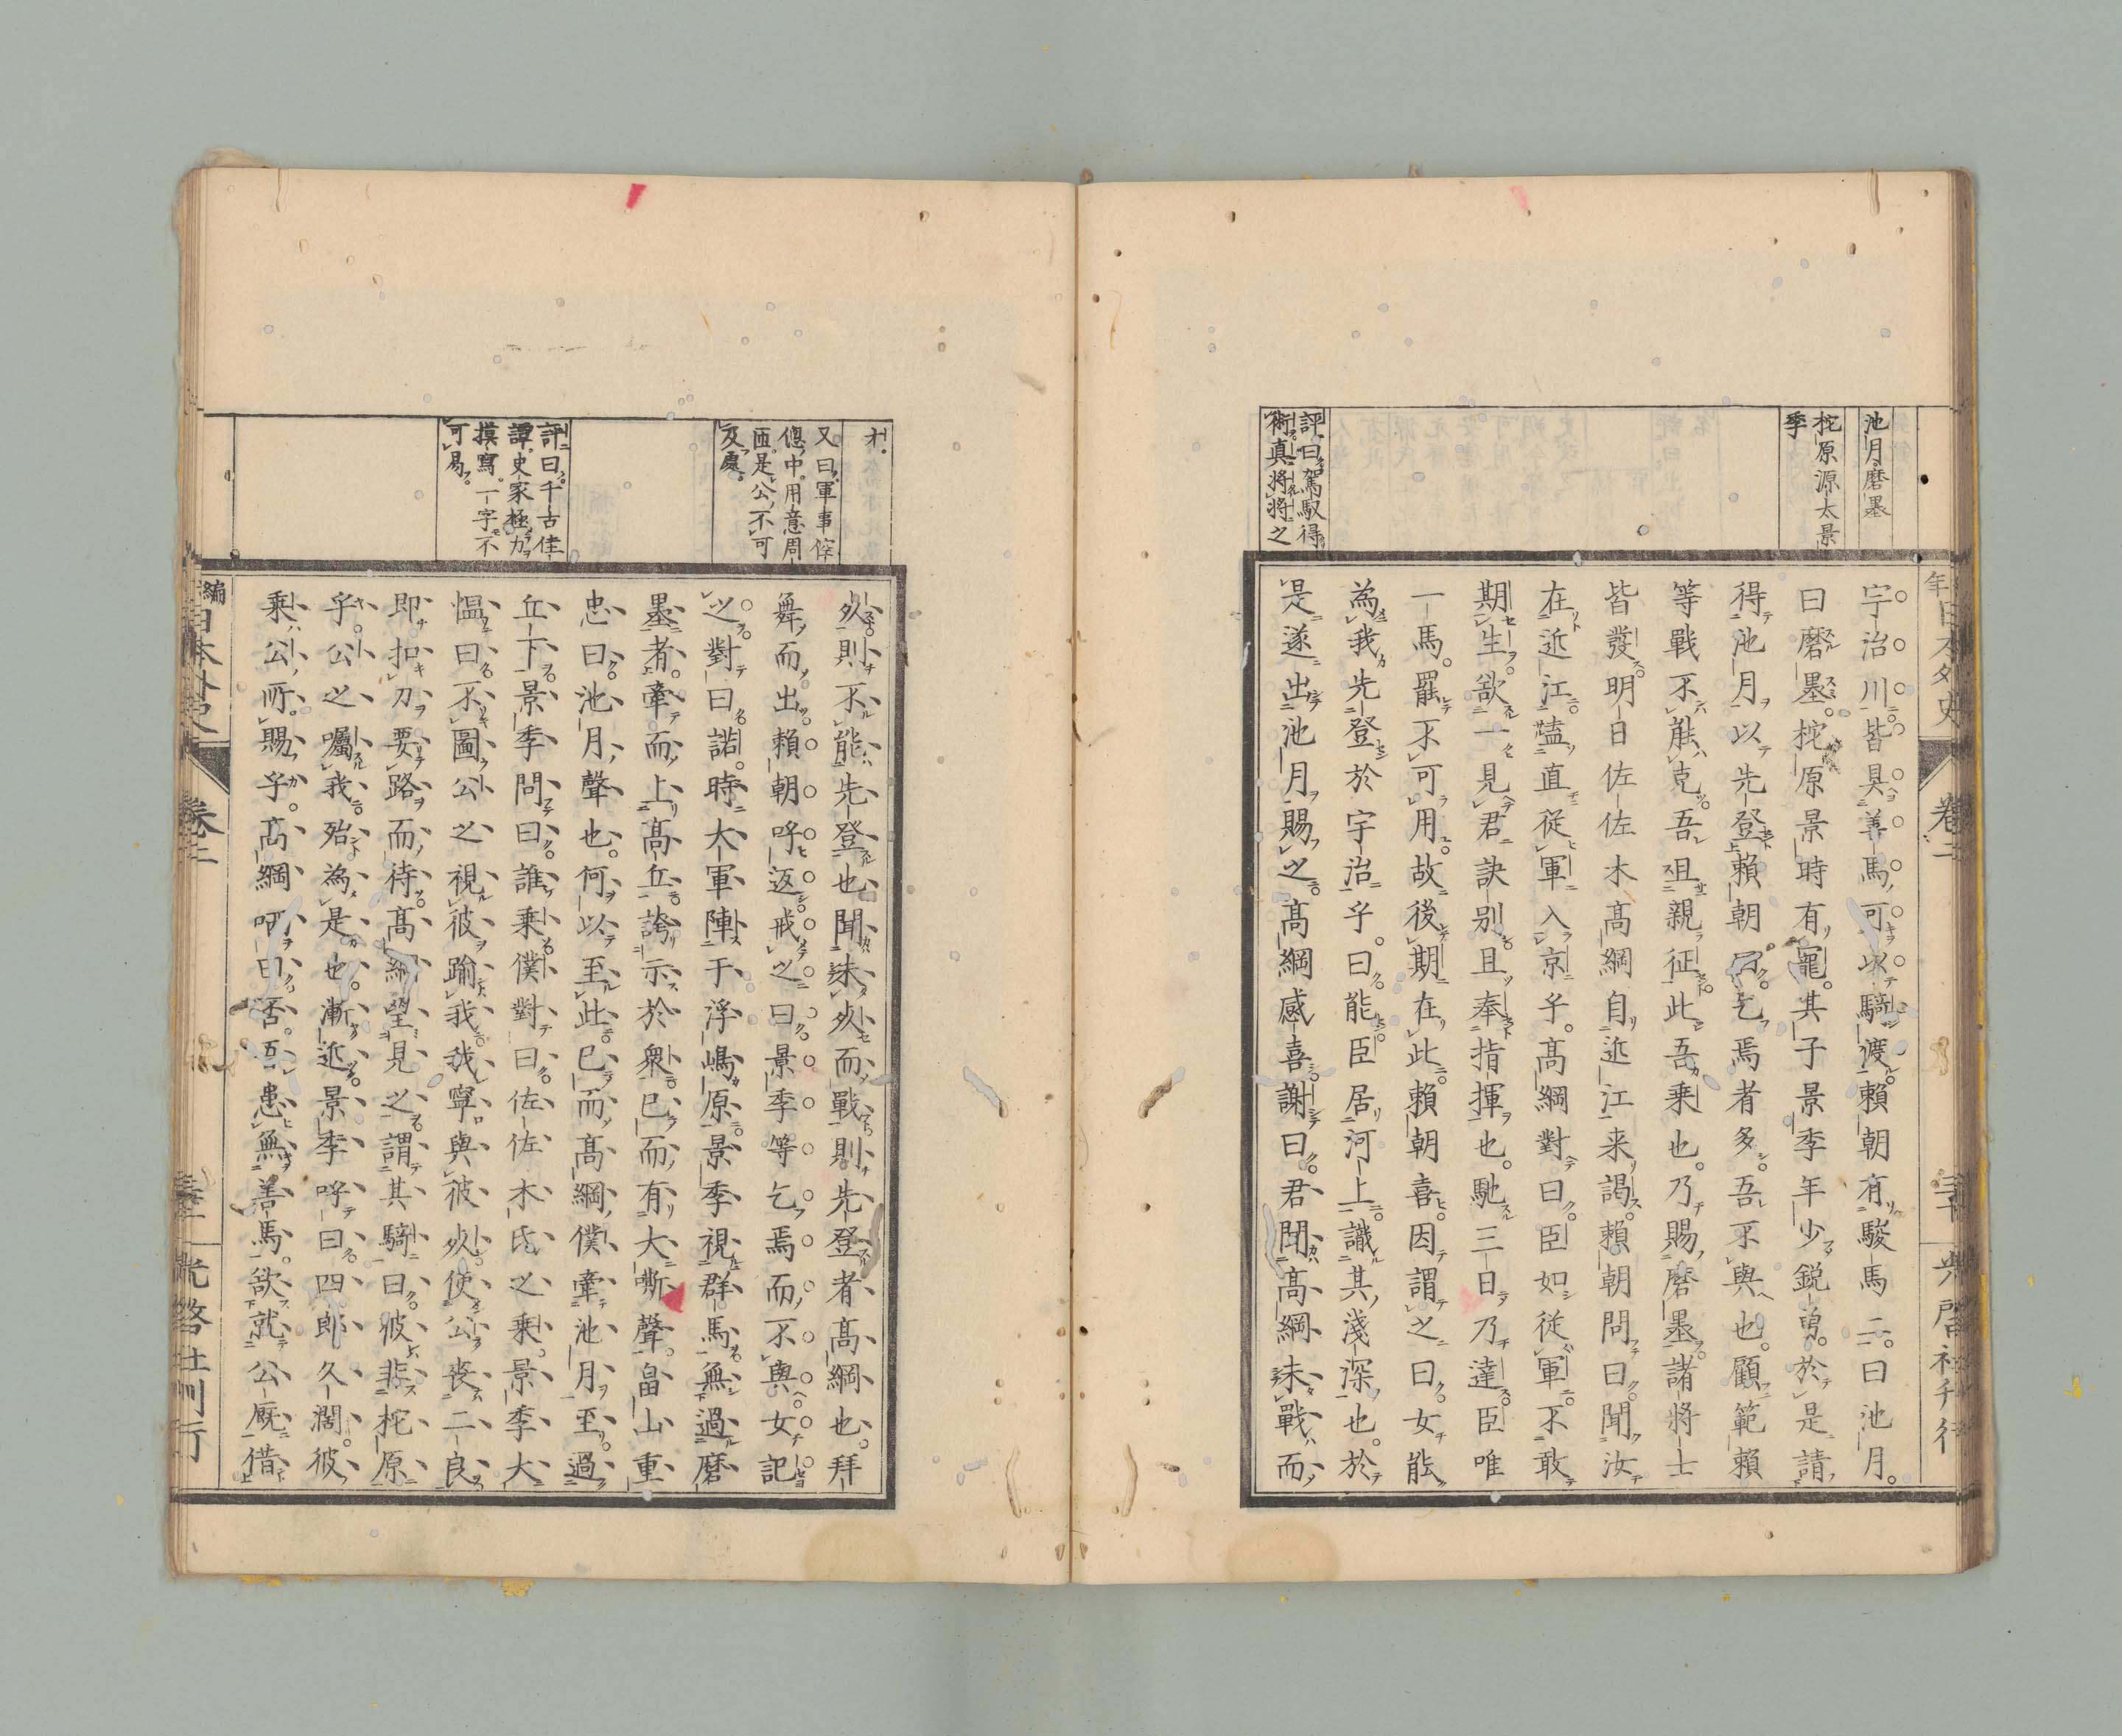 池月磨墨
梶原源太景
季
評曰駕馭得
術真將將之
宇治川皆具善馬可以騎渡賴朝有駿馬二曰池月
曰磨墨梶原景時有寵其子景季年少鋭勇於是請
得池月以先登賴朝曰乞焉者多吾不與也顧範賴
等戰不能克吾且親征此吾乘也乃賜磨墨諸將士
皆發明日佐佐木高綱自近江来謁賴朝問曰聞汝
在近江盍直從軍入京乎高綱對曰臣如從軍不敢
期生欲一見君訣別且奉指揮也馳三日乃達臣唯
一馬罷不可用故後期在此賴朝喜因謂之曰女能
為我先登於宇治乎曰能臣居河上識其淺深也於
是遂出池月賜之高綱感喜謝曰君聞高綱未戰而
才
又曰軍事倥
偬中用意周
匝是公不可
及處
評曰千古佳
譚史家極力
摸寫一字不
可易
死則不能先登也聞未死而戰則先登者高綱也拜
舞而出賴朝呼返戒之曰景季等乞焉而不與女記
之對曰諾時大軍陣于浮嶋原景季視群馬無過磨
墨者牽而上高丘誇示於衆已而有大嘶聲畠山重
忠曰池月聲也何以至此已而高綱僕牽池月至過
丘下景季問曰誰乘僕對曰佐佐木氏之乘景季大
愠曰不圖公之視彼踰我我寧與彼死使公喪二良
即扣刀要路而待高綱望見之謂其騎曰彼非梶原
乎公之囑我殆為是也漸近景季呼曰四郎久濶彼
乘公所賜乎高綱呵曰否吾患無善馬欲就公厩借